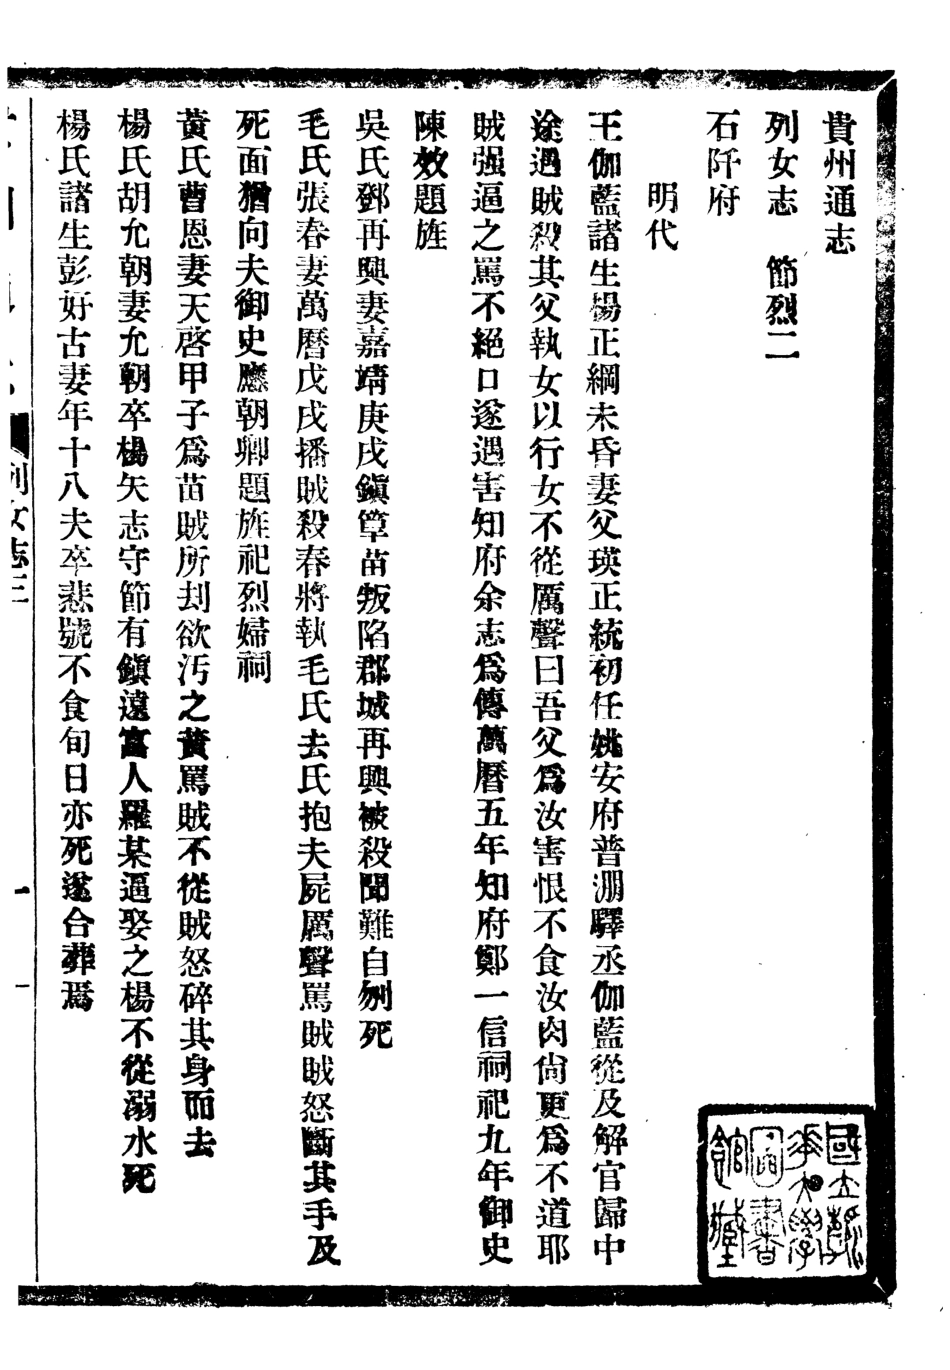 貴州通志
列女志　節烈二
石阡府
明代
王伽藍諸生楊正綱未昏妻父瑛正統初任姚安府普淜驛丞伽藍從及解官歸中
途遇賊殺其父執女以行女不從厲聲曰吾父爲汝害恨不食汝肉尙更爲不道耶
賊强逼之罵不絕口遂遇害知府余志爲傳萬曆五年知府鄭一信祠祀九年御史
陳效題旌
吳氏鄧再興妻嘉靖庚戌鎭筸苗叛陷郡城再興被殺聞難自刎死
毛氏張春妻萬曆戊戌播賊殺春將執毛氏去氏抱夫屍厲聲罵賊賊怒斷其手及
死面猶向夫御史應朝卿題旌祀烈婦祠
黃氏曹恩妻天啓甲子爲苗賊所刦欲汚之黃罵賊不從賊怒碎其身而去
楊氏胡允朝妻允朝卒楊矢志守節有鎭遠富人羅某逼娶之楊不從溺水死
楊氏諸生彭好古妻年十八夫卒悲號不食旬日亦死遂合葬焉
列女志三
一
國立
大學
圖書
館藏